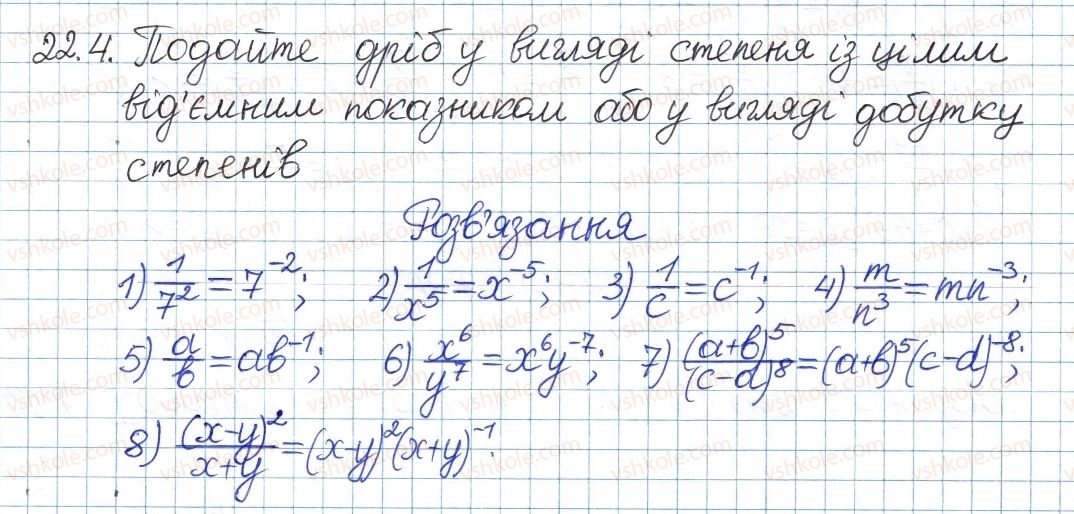 22.4. Подайте дріб у вигляді степеня із цілим
від'ємним показником або у вигляді добутку
степенів
Розв'язання
1) 1/7² = 7⁻²; 2) 1/x⁵ = x⁻⁵; 3) 1/c = c⁻¹; 4) m/n³ = mn⁻³;
5) a/b = ab⁻¹; 6) x⁶/y⁷ = x⁶y⁻⁷; 7) (a+b)⁵/(c-d)⁸ = (a+b)⁵(c-d)⁻⁸;
8) (x-y)²/x+y = (x-y)²(x+y)⁻¹.